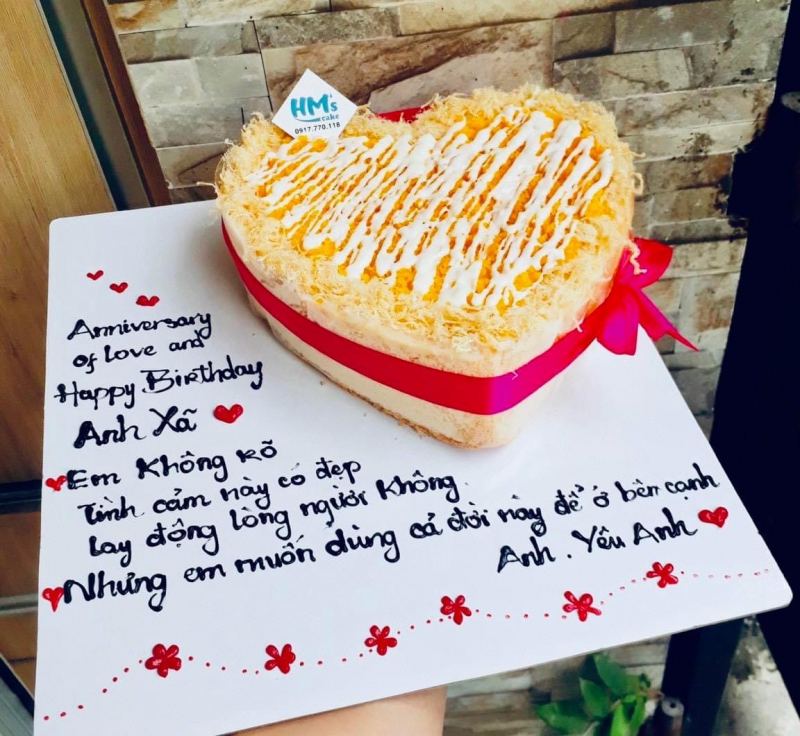 HM's
cake
0917.770.118
Anniversary
of love and
Happy Birthday
Anh Xã
Em Không rõ
Tình cảm này có đẹp
lay động lòng người Không
Nhưng em muốn dùng cả đời này để ở bên cạnh
Anh. Yêu Anh